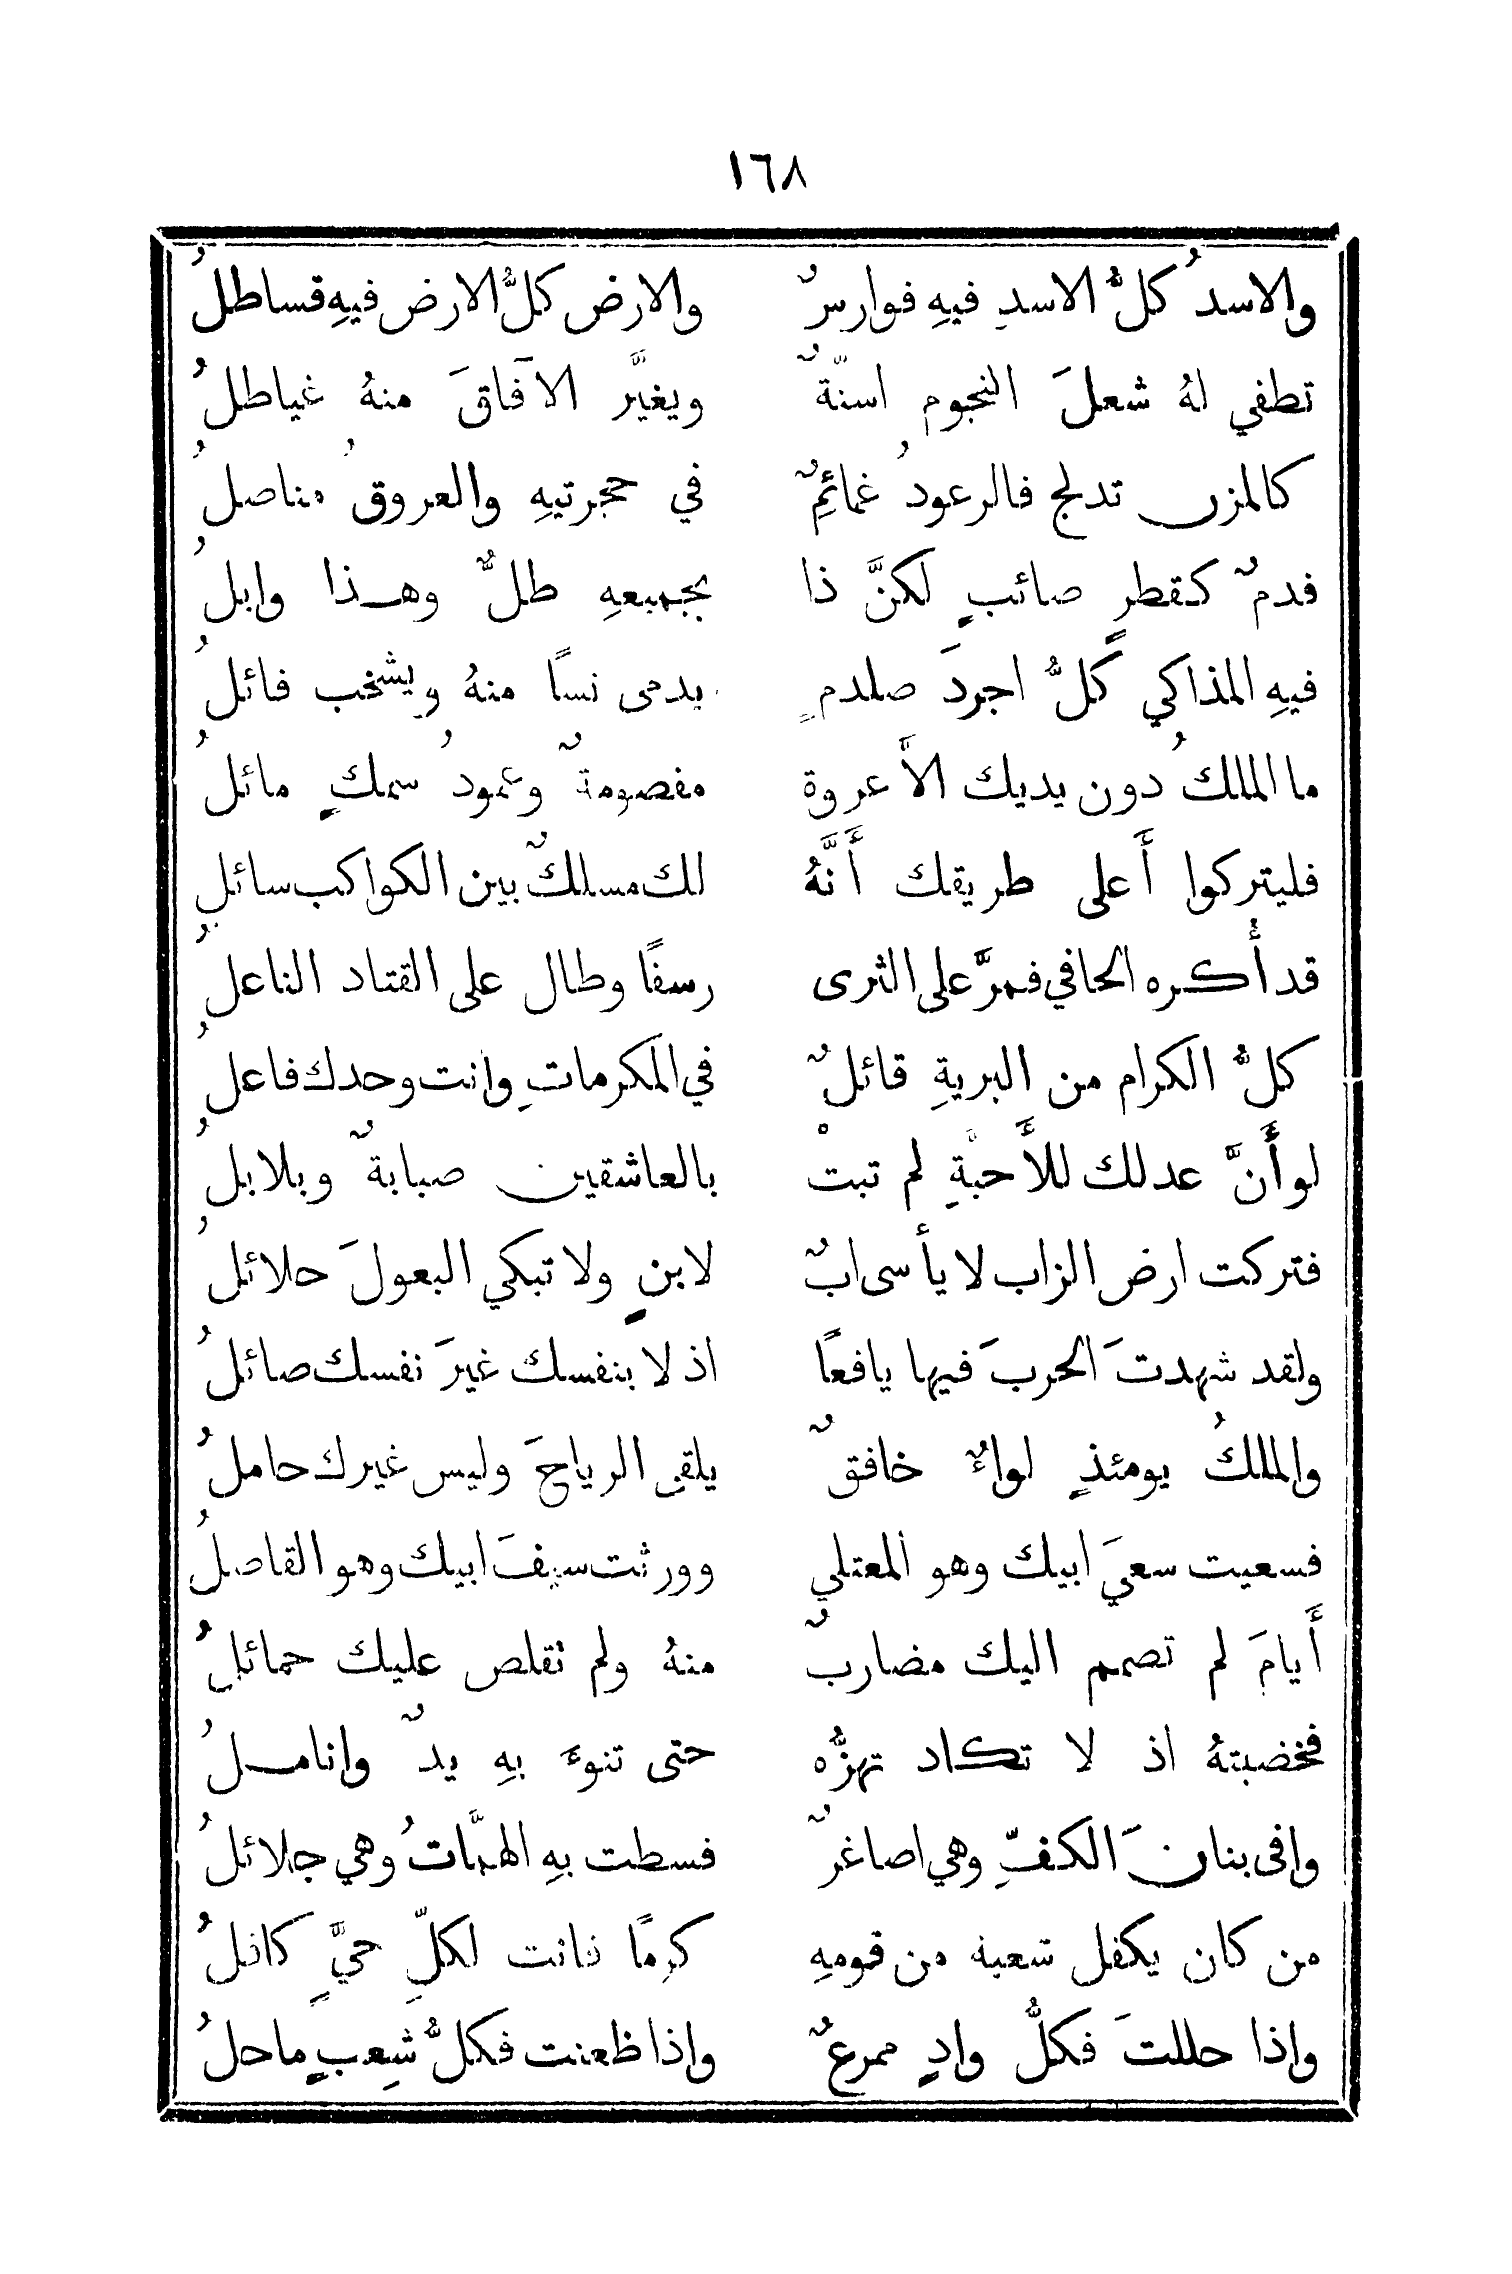 ١٦٨
والاسدُ كلُّ الاسدِ فيهِ فوارسٌ والارض كلُّ الارض فيهِ قساطلُ
تطفي لهُ شعلَ النجوم اسنّةٌ ويغيَّر الآفاقَ منهُ غياطلُ
كالمزن تدلج فالرعودُ غمائمٌ في حجرتيهِ والعروقُ مناصلُ
فدمٌ كقطرٍ صائبٍ لكنَّ ذا بجميعهِ طلٌّ وهذا وابلُ
فيهِ المذاكي كلُّ اجردَ صلدمٍ يدمى نسًا منهُ ويشخب فائلُ
ما الملكُ دون يديك الاَّ عروة مفصومةٌ وعمودُ سمكٍ مائلُ
فليتركوا أَعلى طريقك أَنَّهُ لك مسلكٌ بين الكواكب سائل
قد أُكره الحافي فمرَّ على الثرى رسفًا وطال على القتاد الناعلُ
كلُّ الكرام من البريةِ قائلٌ في المكرماتِ وانت وحدك فاعلُ
لو أَنَّ عدلك للأَحبَّةِ لم تبتْ بالعاشقين صبابةٌ وبلابلُ
فتركت ارض الزاب لا يأسى ابٌ لابنٍ ولا تبكي البعولَ حلائلُ
ولقد شهدتَ الحربَ فيها يافعًا اذ لا بنفسك غيرَ نفسك صائلُ
والملكُ يومئذٍ لواءٌ خافقٌ يلقى الرياحَ وليس غيرك حاملُ
فسعيت سعيَ ابيك وهو المعتلي وورثت سيفَ ابيك وهو القاصلُ
أَيامَ لم تضمم اليك مضاربٌ منهُ ولم تقلص عليك حمائلُ
فخضبتهُ اذ لا تكاد تهزُّه حتى تنوءَ بهِ يدٌ واناملُ
وافى بنانَ الكفِّ وهي اصاغرٌ فسطت بهِ الهمَّاتُ وهي جلائلُ
من كان يكفل شعبة من قومهِ كرمًا فانت لكلِّ حيٍّ كافلُ
واذا حللتَ فكلُّ وادٍ ممرعٌ واذا ظعنت فكلُّ شِعبٍ ماحلُ